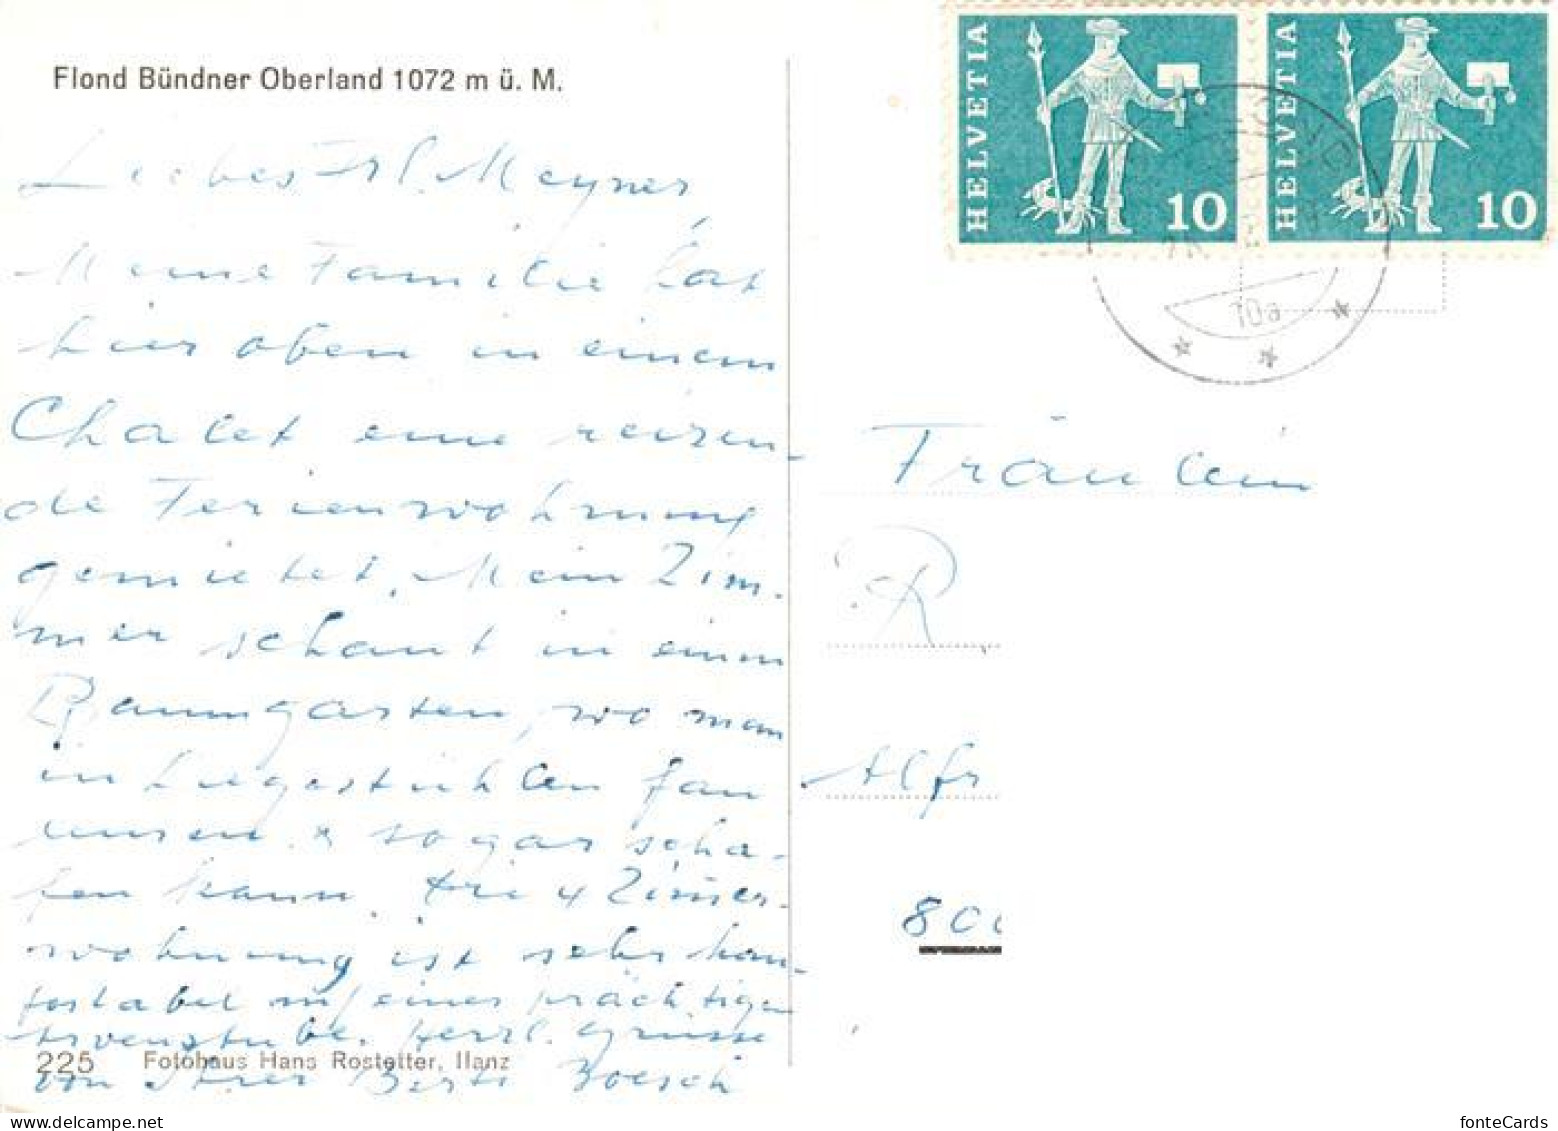 Flond Bündner Oberland 1072 m ü. M.
Liebes Frl. Meyner,
Meine Familie hat
hier oben in einem
Chalet eine reizen-
de Ferienwohnung
gemietet. Mein Zim-
mer schaut in einen
Baumgarten, wo man
in Liegestühlen fau
lensen & sogar scha-
fen kann. Die 4 Zimmer-
wohnung ist sehr kom-
fortabel mit einer prächtigen
Arvenstube. Herzl. Grüsse
von Ihrer Berti Boesch
225 Fotohaus Hans Rostetter, Ilanz
HELVETIA 10
HELVETIA 10
10a
Fräulein
R
Alfr
800
delcampe.net
fonteCards